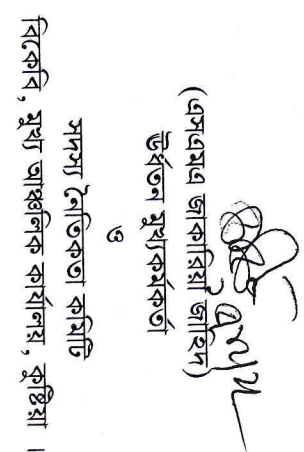 (এসএমএ জাকারিয়া জাহিদ)
উর্ধতন মুখ্য কর্মকর্তা
ও
সদস্য নৈতিকতা কমিটি
বিকেবি, মুখ্য আঞ্চলিক কার্যালয়, কুষ্টিয়া ।